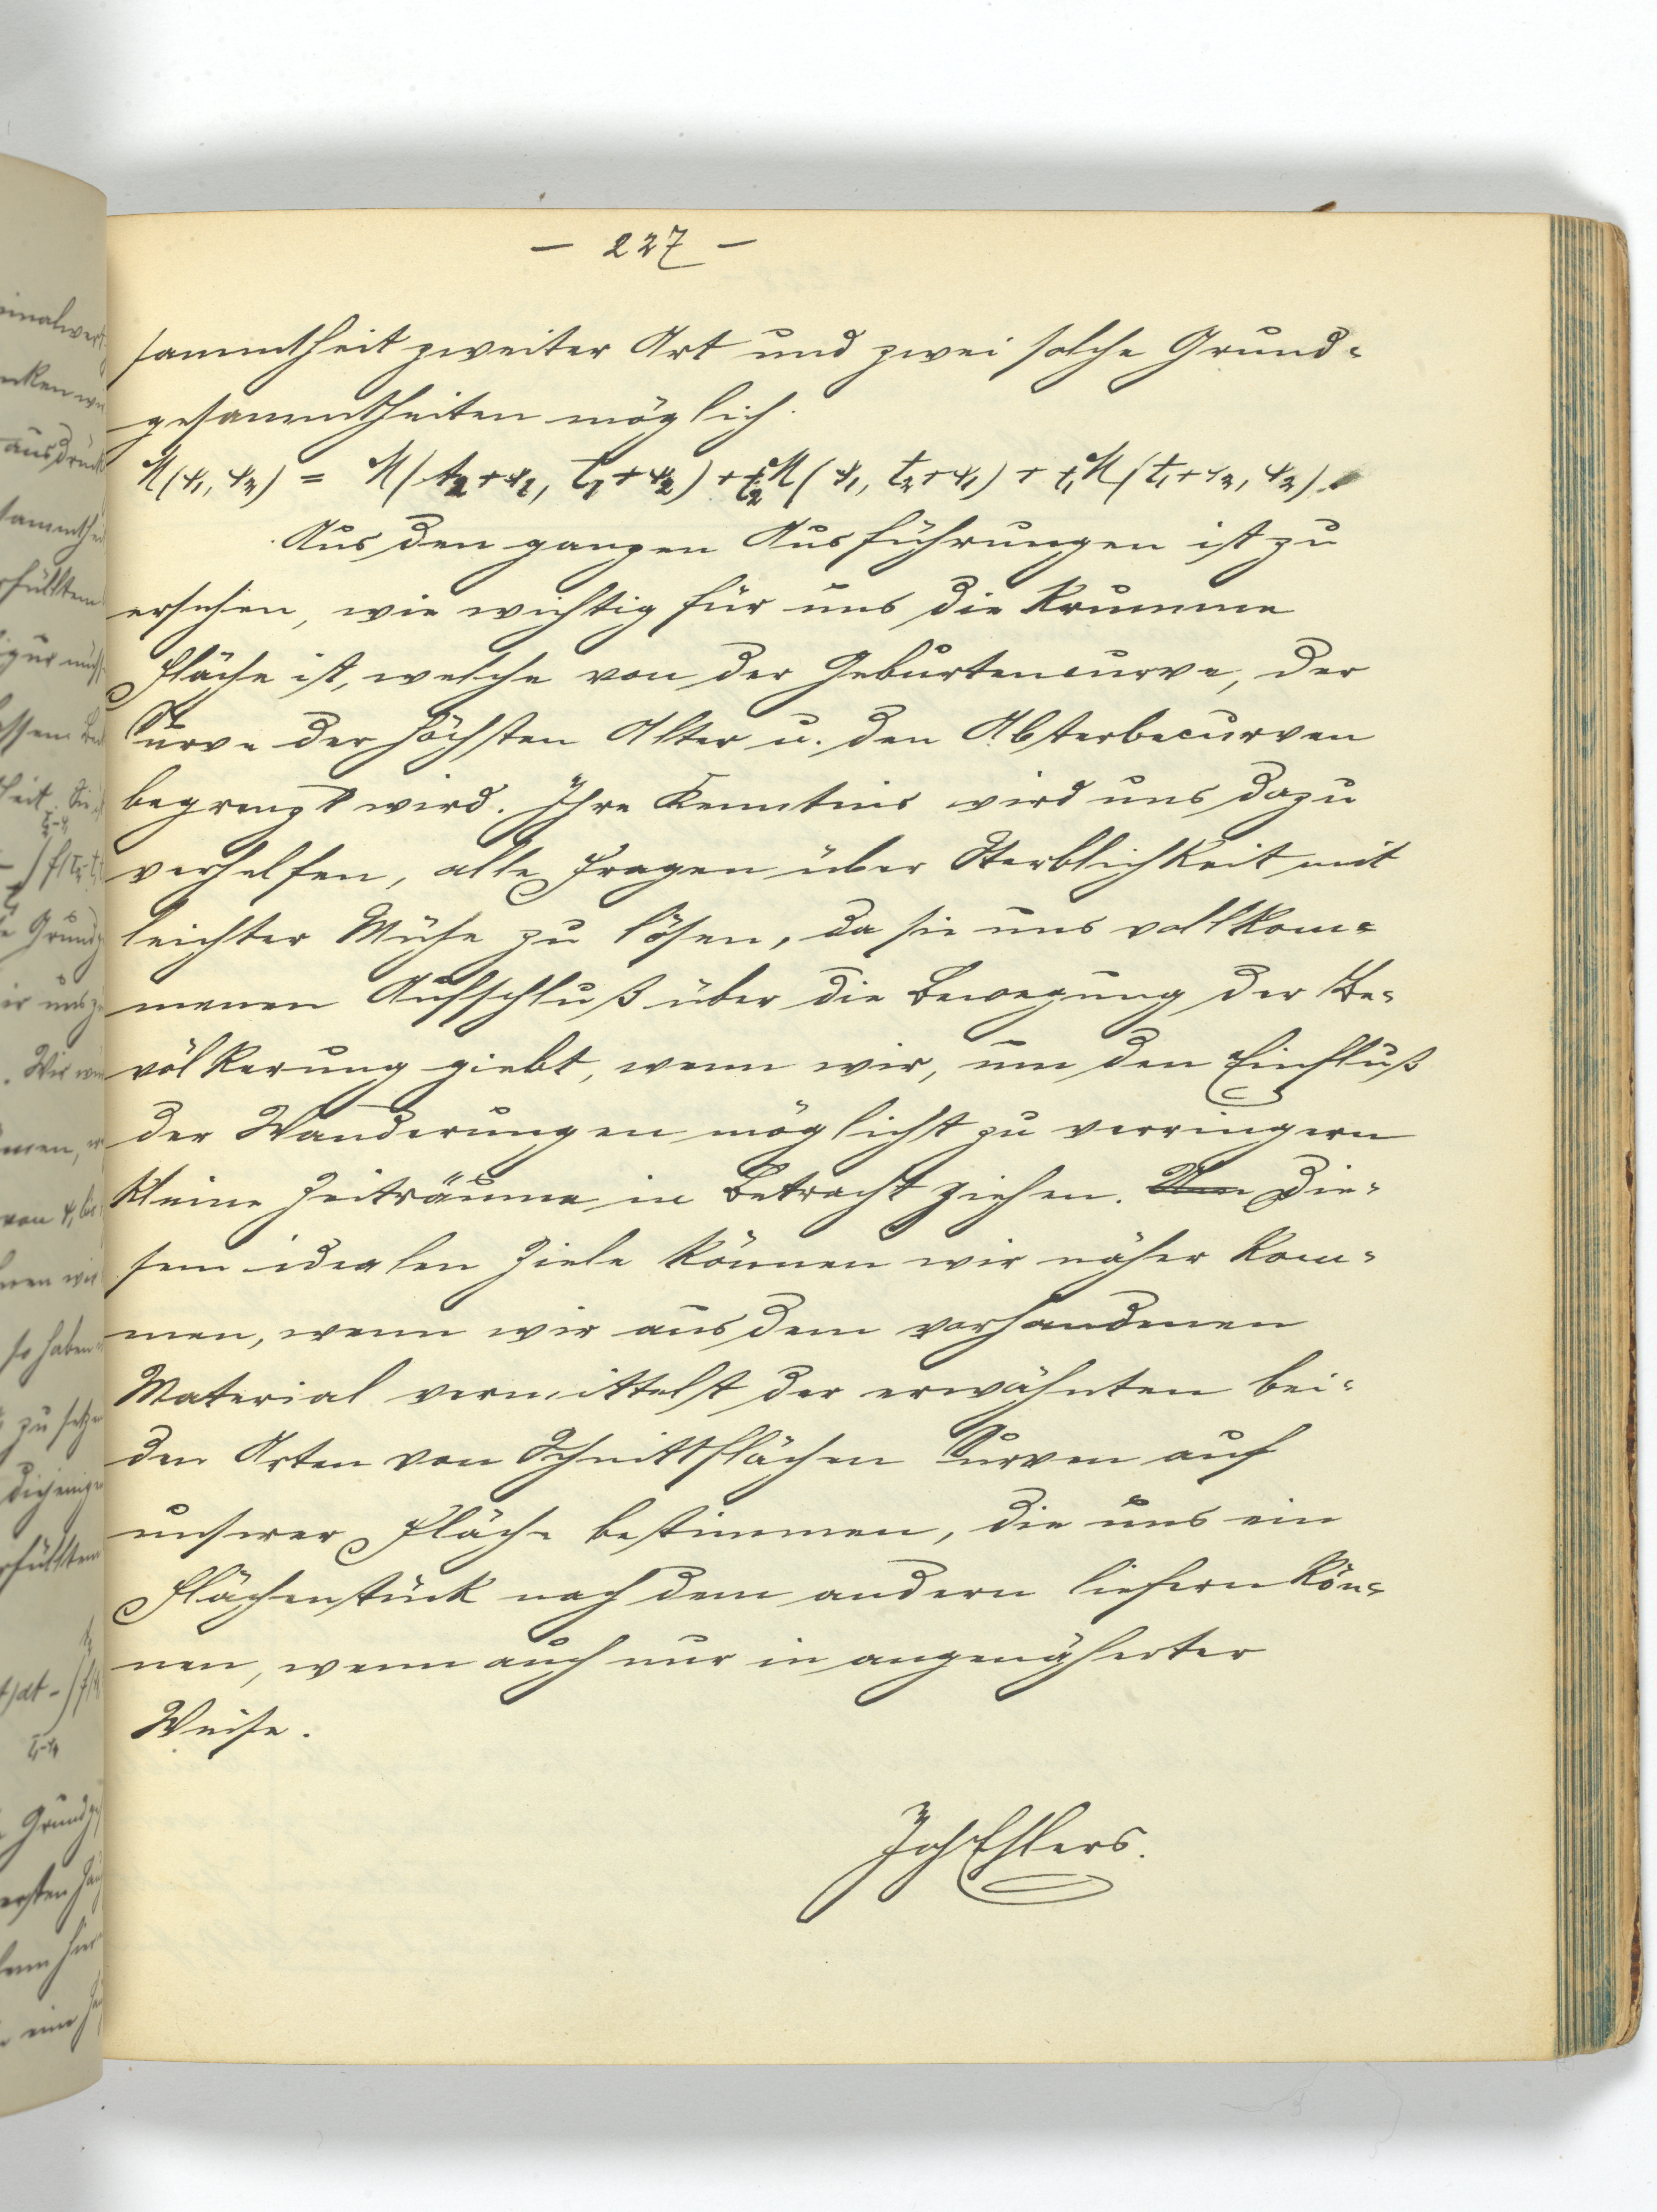 — 227 —
sammtheit zweiter Art und zwei solche Grund-
gesammtheiten möglich.
M(ψ₁, ψ₂) = M(t₂+ψ₁, t₁+ψ₂) + t₂M(ψ₁, t₂+ψ₁) + t₁M(t₁+ψ₂, ψ₂).
Aus den ganzen Ausführungen ist zu
ersehen, wie wichtig für uns die krumme
Fläche ist, welche von der Geburtencurve, der
Curve der höchsten Alter u. den Absterbecurven
begrenzt wird. Ihre Kenntnis wird uns dazu
verhelfen, alle Fragen über Sterblichkeit mit
leichter Mühe zu lösen, da sie uns vollkom-
menen Aufschluß über die Bewegung der Be-
völkerung giebt, wenn wir, um den Einfluß
der Wanderungen möglichst zu verringern
kleine Zeiträume in Betracht ziehen. Die-
sem idealen Ziele können wir näher kom-
men, wenn wir aus dem vorhandenen
Material vermittelst der erwähnten bei-
den Arten von Schnittflächen Curven auf
unserer Fläche bestimmen, die uns ein
Flächenstück nach dem andern liefern kön-
nen, wenn auch nur in angenäherter
Weise.
Joh Ehlers.